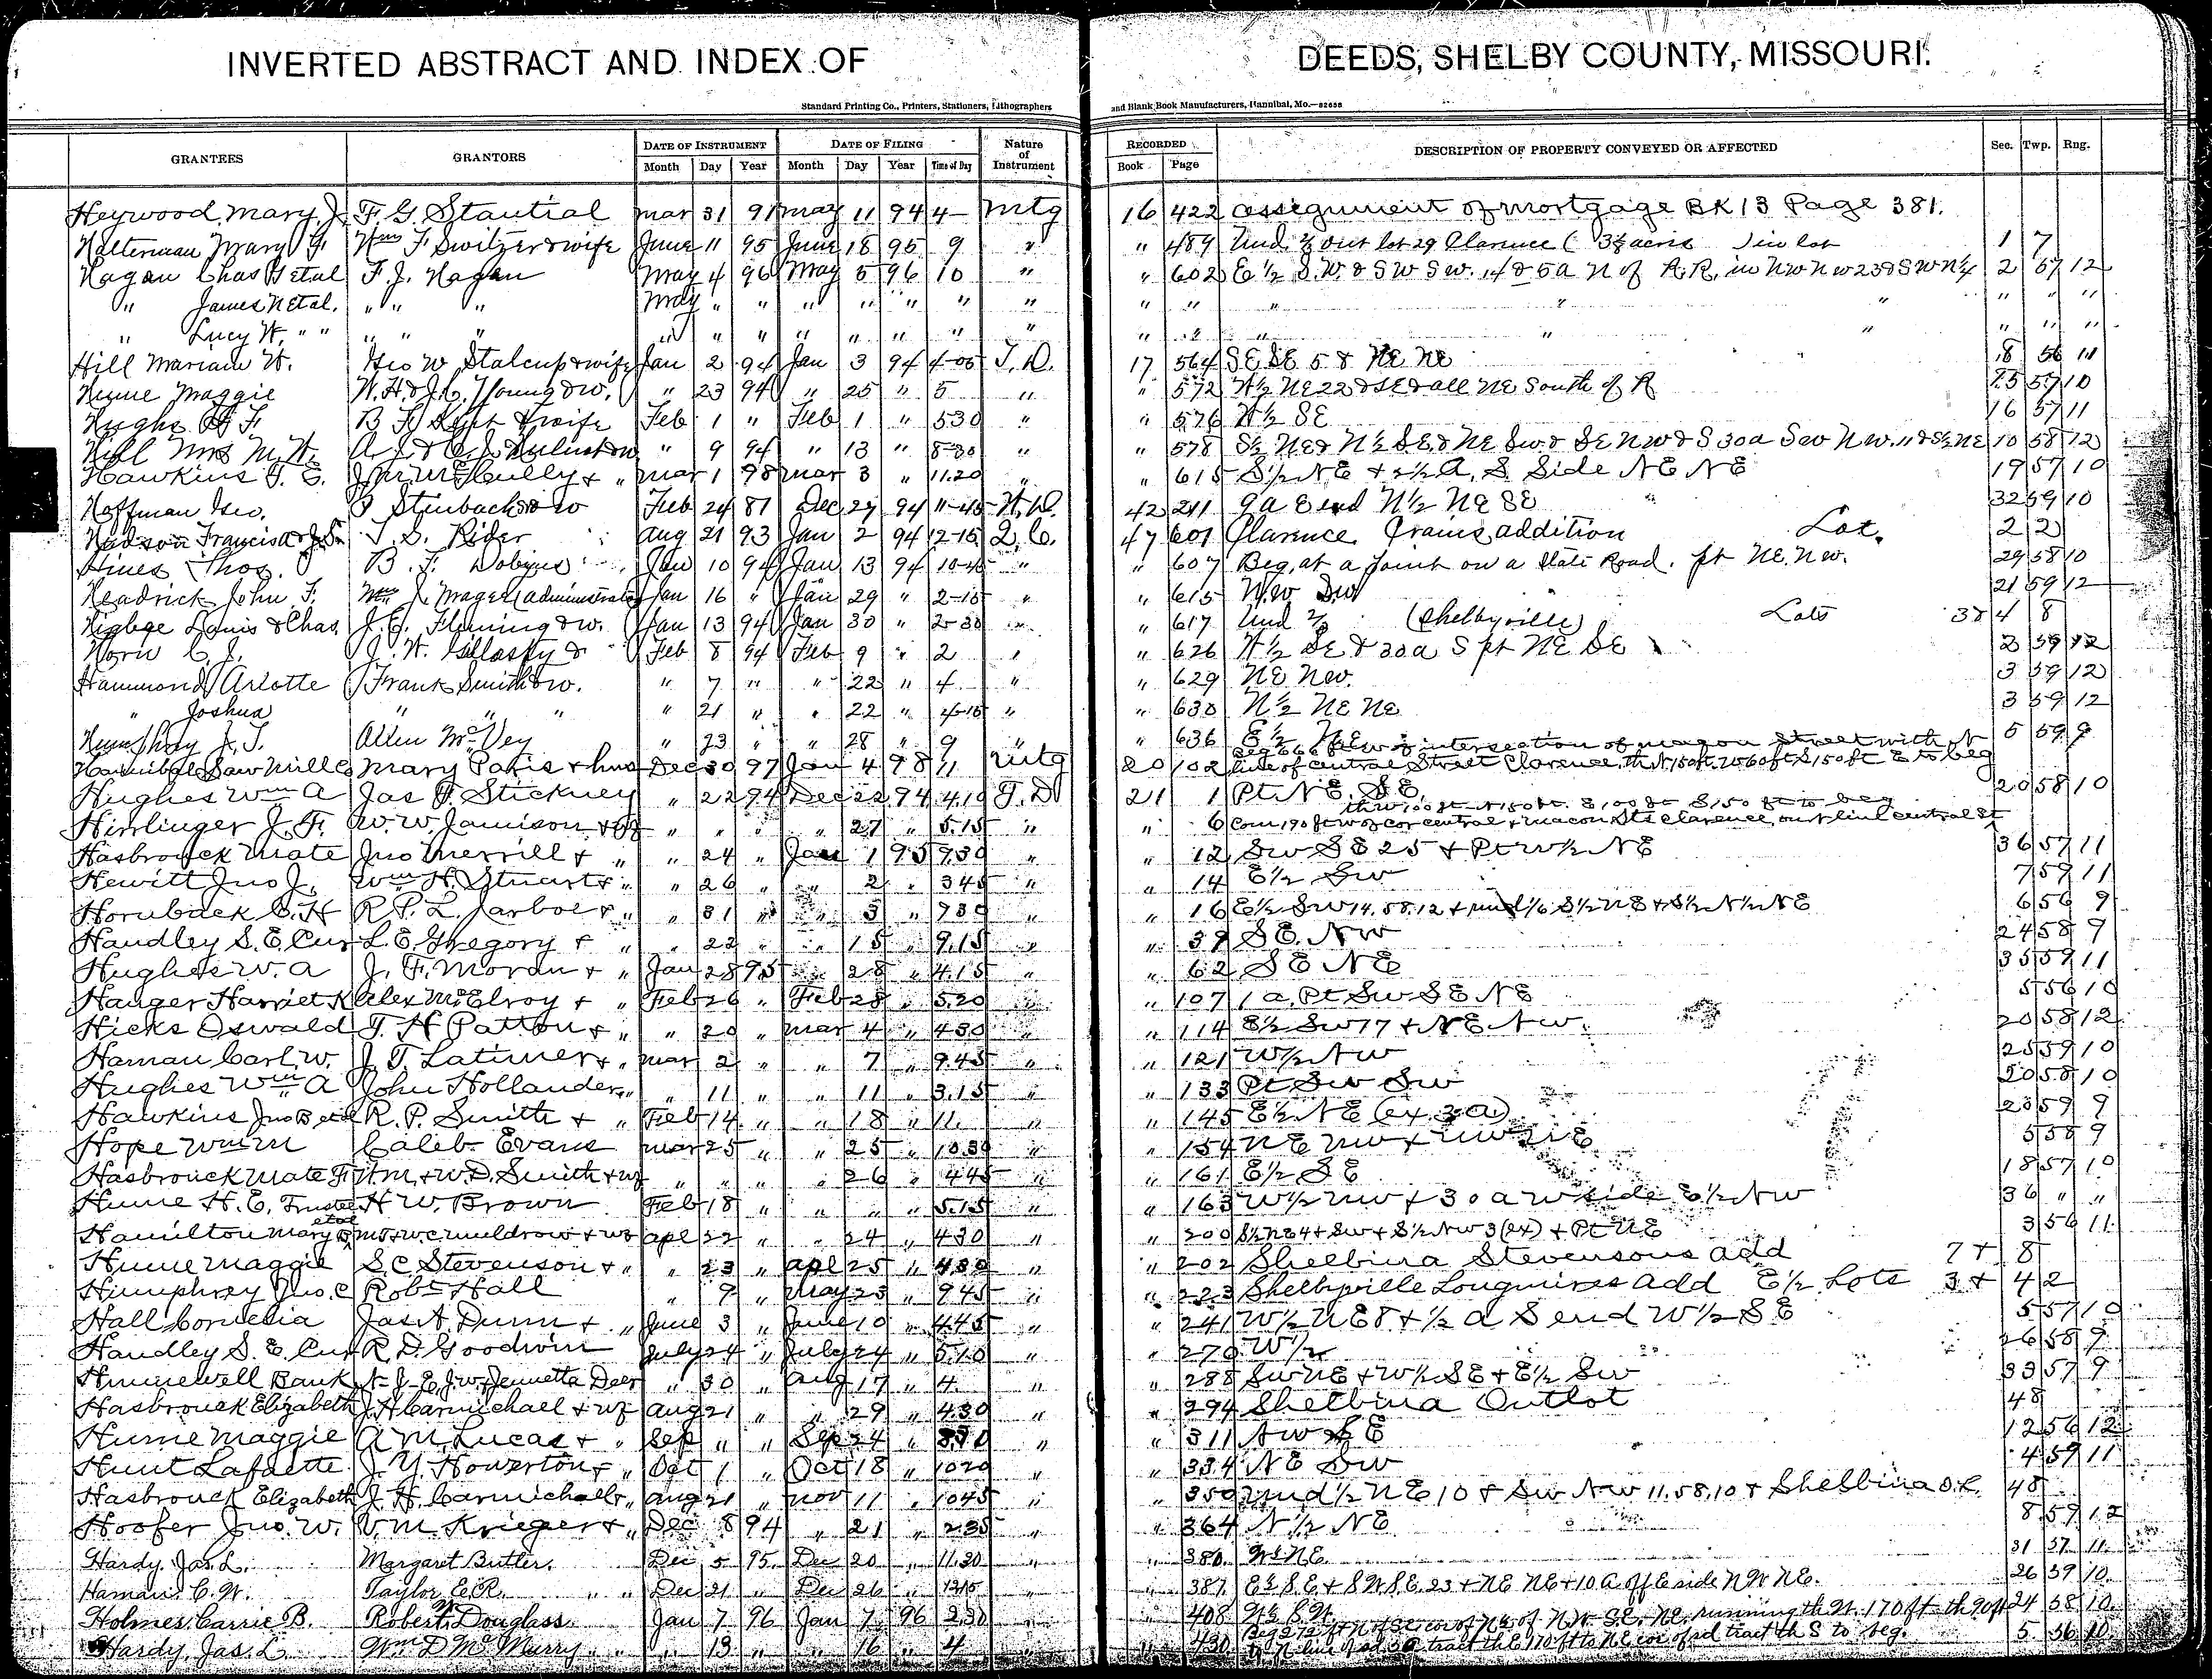 INVERTED ABSTRACT AND INDEX OF DEEDS, SHELBY COUNTY, MISSOURI.
Standard Printing Co., Printers, Stationers, Lithographers and Blank Book Manufacturers, Hannibal, Mo.—82658
GRANTEES GRANTORS DATE OF INSTRUMENT DATE OF FILING Nature of Instrument RECORDED DESCRIPTION OF PROPERTY CONVEYED OR AFFECTED Sec. Twp. Rng.
Month Day Year Month Day Year Time of Day Book Page
Heywood Mary J. F. G. Stautial Mar 31 91 May 11 94 4- Mtg 16 422 assignment of mortgage BK 13 Page 381.
Halterman Mary F. Wm F Switzer & wife June 11 95 June 18 95 9 " " 489 Und. out lot 29 Clarence ( acres in lot 1 7
Hagan Chas etal F. J. Hagan May 4 96 May 5 96 10 " " 602 E 1/2 S.W. & SW SW. 14 & 5a N of R.R. in NW NW 23 & SW N 1/4 2 57 12
" James N etal. " " " May " " " " " " " " " " " " " " "
" Lucy H. " " " " " " " " " " " " " " " " " " " " "
Hill Mariam H. Geo W Stalcup & wife Jan 2 94 Jan 3 94 4-05 T.D. 17 564 SE SE 5 & NE NE 8 56 11
Hume Maggie W.H. & J.C. Young & w. " 23 94 " 25 " 5 " " 572 W 1/2 NE 22 & SE & all NE South of R 15 57 10
Hughs H F. B F & wife Feb 1 " Feb 1 " 530 " " 576 W 1/2 SE 16 57 11
Hill Mrs M. H. A. J. & C. J. " 9 94 " 13 " 8-30 " 578 S 1/2 NE & N 1/2 SE & NE SW & SE NW & S 30a SW NW. 11 & S 1/2 NE 10 58 12
Hawkins T. E. J. M. McCully & " Mar 1 98 Mar 3 " 11.20 " 615 S 1/2 NE + 2 1/2 A. S Side NE NE 19 57 10
Hoffman Geo. Stinbach & w Feb 24 87 Dec 29 94 11-45 W.D. 42 211 9a E end N 1/2 NE SE 32 59 10
Hudson Francis & J. S. T. S. Rider Aug 21 93 Jan 2 94 12-15 Q.C. 47 601 Clarence Crains addition Lot. 2 2
Hines Thos. B. F. Dobyns Jan 10 94 Jan 13 94 10-45 " " 607 Beg. at a point on a State Road. pt NE. NW. 29 58 10
Headrick John F. Wm J. Magee (administrator Jan 16 " Jan 29 " 2-15 " " 615 NW SW 21 59 12
Higbee Louis & Chas. J. E. Fleming & w. Jan 13 94 Jan 30 " 2-30 " " 617 Und (Shelbyville) Lots 3 & 4 8
Horn C. J. J. W. Gillaspy & Feb 8 94 Feb 9 " 2 " " 626 W 1/2 SE & 30a S pt NE SE 2 59 12
Hammond Arlotte Frank Smith & w. " 7 " " 22 " 4 " " 629 NE NW. 3 59 12
" Joshua " " " " 21 " " 22 " 4-15 " " 630 N 1/2 NE NE 3 59 12
Humphrey J. T. Allen McVey " 23 " " 28 " 9 " " 636 E 1/2 NE 5 59 9
Hannibal Saw Mill Co Mary Paris & hus Dec 30 97 Jan 4 98 11 Mtg 20 102 Beg 666 ft W of intersection of Macon Street with N line of Central Street Clarence, th N 150 ft. W 60 ft S 150 ft E to beg
Hughes Wm A Jas F. Stickney " 22 94 Dec 22 94 4.10 T.D 21 1 Pt NE. SE. 20 58 10
Hirrlinger J. F. W. W. Jamison & wf " " " " 27 " 5.15 " " 6 Com 190 ft W of cor Central & Macon Sts Clarence, on N line Central St th W 100 ft N 150 ft. E 100 ft S 150 ft to beg
Hasbrouck Mate Jno Merrill & " " 24 " Jan 1 95 9.30 " " 12 SW SE 25 + Pt W 1/2 NE 36 57 11
Hewitt Jno J. Wm H. Stuart & " " 26 " " 2 " 345 " " 14 E 1/2 SW 7 59 11
Hornback C. H R. P. L. Jarboe & " " 31 " " 3 " 930 " " 16 E 1/2 SW 14. 58. 12 + und 1/6 S 1/2 NE + S 1/2 N 1/2 NE 6 56 9
Handley S. E. Cur L. E. Gregory & " " 22 " " 15 " 9.15 " " 39 SE. NW 24 58 9
Hughes W. A J. F. Moran & " Jan 28 95 " 28 " 4.15 " " 62 SE NE 35 59 11
Hanger Harriet K Alex McElroy & " Feb 26 " Feb 28 " 5.20 " " 107 1 a. Pt SW SE NE 5 56 10
Hicks Oswald T. H Patton & " " 20 " Mar 4 " 430 " " 114 E 1/2 SW 17 + NE NW. 20 58 12
Haman Carl W. J. T. Latimer & " Mar 2 " " 7 " 9.45 " " 121 W 1/2 NW 25 59 10
Hughes Wm A John Hollander " " 11 " " 11 " 3.15 " " 133 Pt SW SW 20 58 10
Hawkins Jno B etal R. P. Smith & " Feb 14 " " 18 " 11. " " 145 E 1/2 NE (ex. 3a) 23 59 9
Hope Wm M Caleb Evans Mar 25 " " 25 " 1030 " " 154 NE NW + NW NE 5 58 9
Hasbrouck Mate F. H. M. + W. D. Smith & wf " " " " 26 " 445 " " 161 E 1/2 SE 18 57 10
Hume H. E. Trustee H W. Brown Feb 18 " " " " 5.15 " " 163 W 1/2 NW + 30 a W side E 1/2 NW 36 " "
Hamilton Mary B etal M. F. & W. C. Muldrow & wf Apl 22 " " 24 " 430 " " 200 S 1/2 NE 4 + SW + S 1/2 NW 3 (ex) + Pt NE 3 56 11
Hume Maggie S. C Stevenson & " " 23 " Apl 25 " 430 " " 202 Shelbina Stevensons add 7 + 8
Humphrey Jno. C Robt Hall " 9 " May 23 " 945 " " 223 Shelbyville Longmires Add E 1/2 Lots 3 + 4 2
Hall Cornelia Jas A. Dunn & " June 3 " June 10 " 4.45 " " 241 W 1/2 NE 8 + 1/2 a S end W 1/2 SE 5 57 10
Handley S. E. Cur R. D. Goodwin July 24 " July 24 " 5.10 " " 270 W 1/2 26 58 9
Hunnewell Bank N. J. E. J. W. Jennetta Deer " 30 " Aug 17 " 4. " " 288 SW NE + W 1/2 SE + E 1/2 SW 33 57 9
Hasbrouck Elizabeth J. H Carmichael & wf Aug 21 " " 29 " 430 " " 294 Shelbina Outlot 48
Hume Maggie A M. Lucas & " Sep " " Sep 24 " " " 311 NW SE 12 56 12
Hunt Lafaette J. Y. Howerton & " Oct 1 " Oct 18 " 1020 " " 334 NE SW 4 59 11
Hasbrouck Elizabeth J. H. Carmichael & " Aug 21 " Nov 11 " 1045 " " 350 und 1/2 NE 10 + SW NW 11. 58. 10 + Shelbina O.L. 48
Hoofer Jno. W. V. M. Krieger & " Dec 8 94 " 21 " 2.35 " " 364 N 1/2 NE 8 59 12
Hardy, Jas. L. Margaret Butler. Dec 5 95 Dec 20 " 11.30 " " 380. W 1/2 NE. 31 57 11
Haman. C. W. Taylor, E. R. " " Dec 21 " Dec 26 " 1315 " " 387 E 1/2 S.E. + S W S.E. 23 + NE NE + 10 A off E side N W NE. 26 59 10.
Holmes, Carrie B. Robert Douglass. Jan 7 96 Jan 7 96 2.30 " " 408 W 1/2 S.W. 24 58 10
Hardy, Jas. L Wm D McMurry " " " 13 " " 16 " 4 " " 430 Beg 272 ft N of SE cor of N 1/2 of N.W. S.E. NE. running th W. 170 ft th 90 ft to N line of sd 30 tract th E 170 ft to NE cor of sd tract th S to beg. 5 56 10